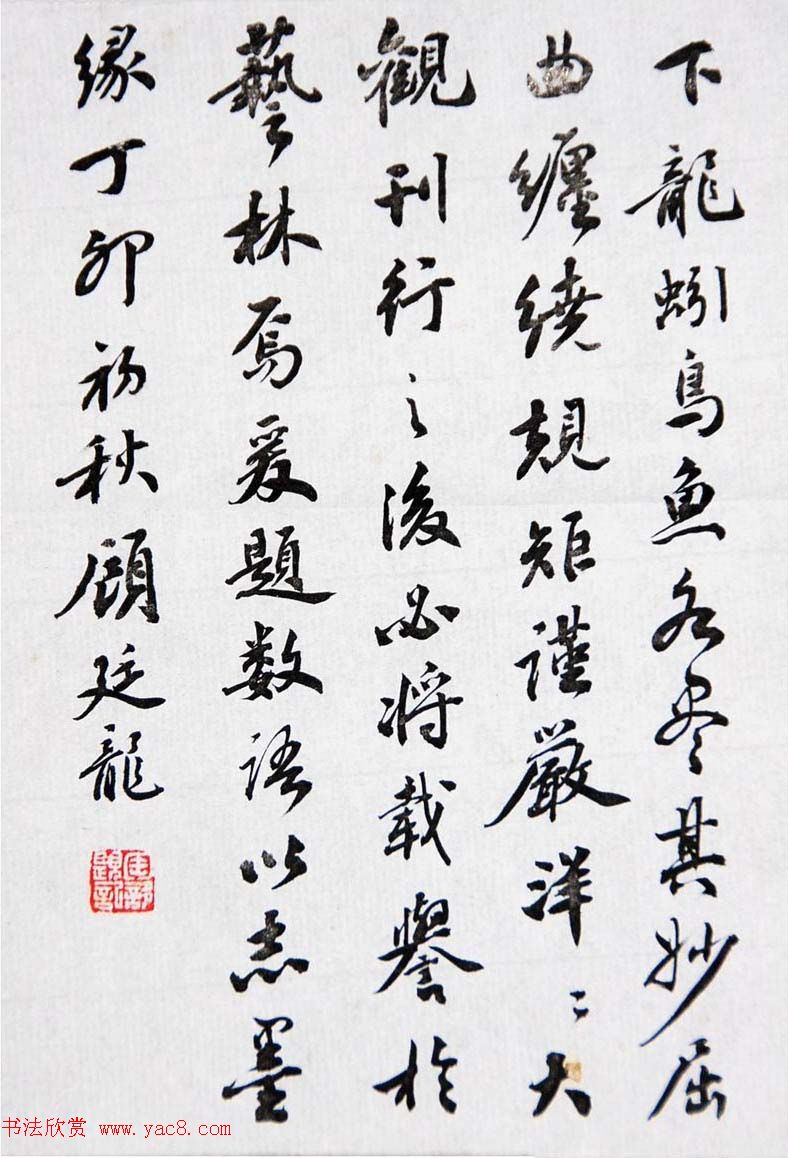 下龍蚓鳥魚各尽其妙屈
曲纏繞規矩謹嚴洋〻大
觀刊行之後必將載譽於
藝林焉爰題數語以志墨
緣丁卯初秋顧廷龍
书法欣赏 www.yac8.com